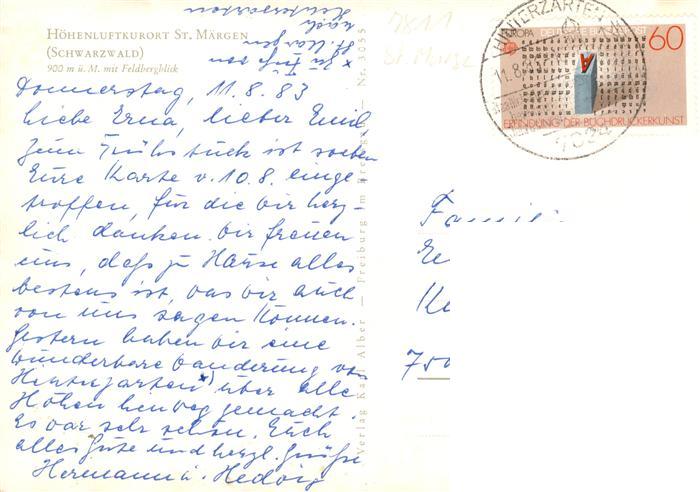 HÖHENLUFTKURORT ST. MÄRGEN
(SCHWARZWALD)
900 m ü. M. mit Feldbergblick
Donnerstag, 11.8.83
Liebe Erna, lieber Emil,
zum Frühstück ist soeben
Eure Karte v. 10.8. einge
troffen, für die wir herz-
lich danken. Wir freuen
uns, daß zu Hause alles
bestens ist, was wir auch
von uns sagen können.
Gestern haben wir eine
wunderbare Wanderung von
Hinterzarten x) über alle
Höhen hinweg gemacht.
Es war sehr schön. Euch
alles Gute und herzl. Grüße
Hermann u. Hedwig
x zu Fuß von
St. Märgen
nach
Hinterzarten
Verlag Karl Alber — Freiburg im Breisgau — Nr. 3055
7811
St. Märge
HINTERZARTEN
11.8.
7824
EUROPA DEUTSCHE BUNDESPOST 60
A
ERFINDUNG DER BUCHDRUCKERKUNST
Famili
750